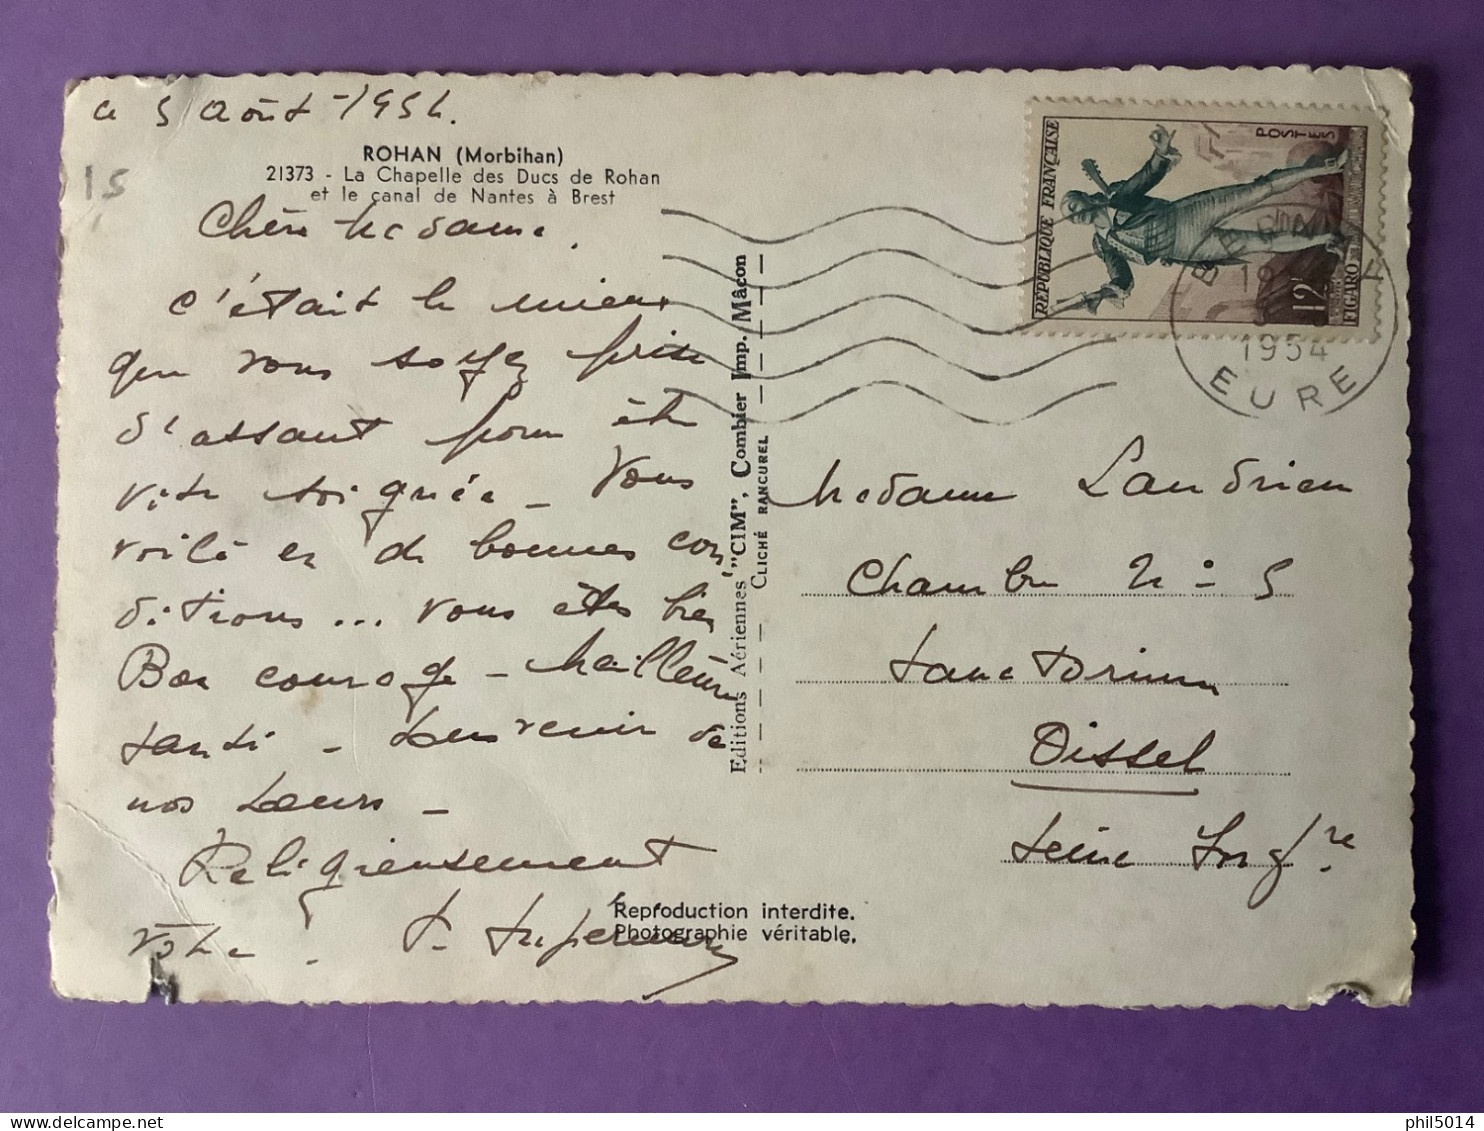 ce 5 Août - 1954.
15
ROHAN (Morbihan)
21373 - La Chapelle des Ducs de Rohan
et le canal de Nantes à Brest
Chère Madame.
c'était le mieux
que vous soyez prise
d'assaut pour être
vite soignée - Vous
voilà en de bonnes con
ditions... vous êtes bien
Bon courage - Meilleure
santé - Souvenir de
nos Soeurs -
Religieusement
Vôtre. S. Supérieure
Editions Aériennes "CIM", Combier Imp. Mâcon
CLICHÉ RANCUREL
Reproduction interdite.
Photographie véritable.
REPUBLIQUE FRANÇAISE
POSTES
12F
FIGARO
BERNAY
1954
EURE
Madame Landrieu
Chambre N° 5
Sanatorium
Oissel
Seine Infre
phil5014